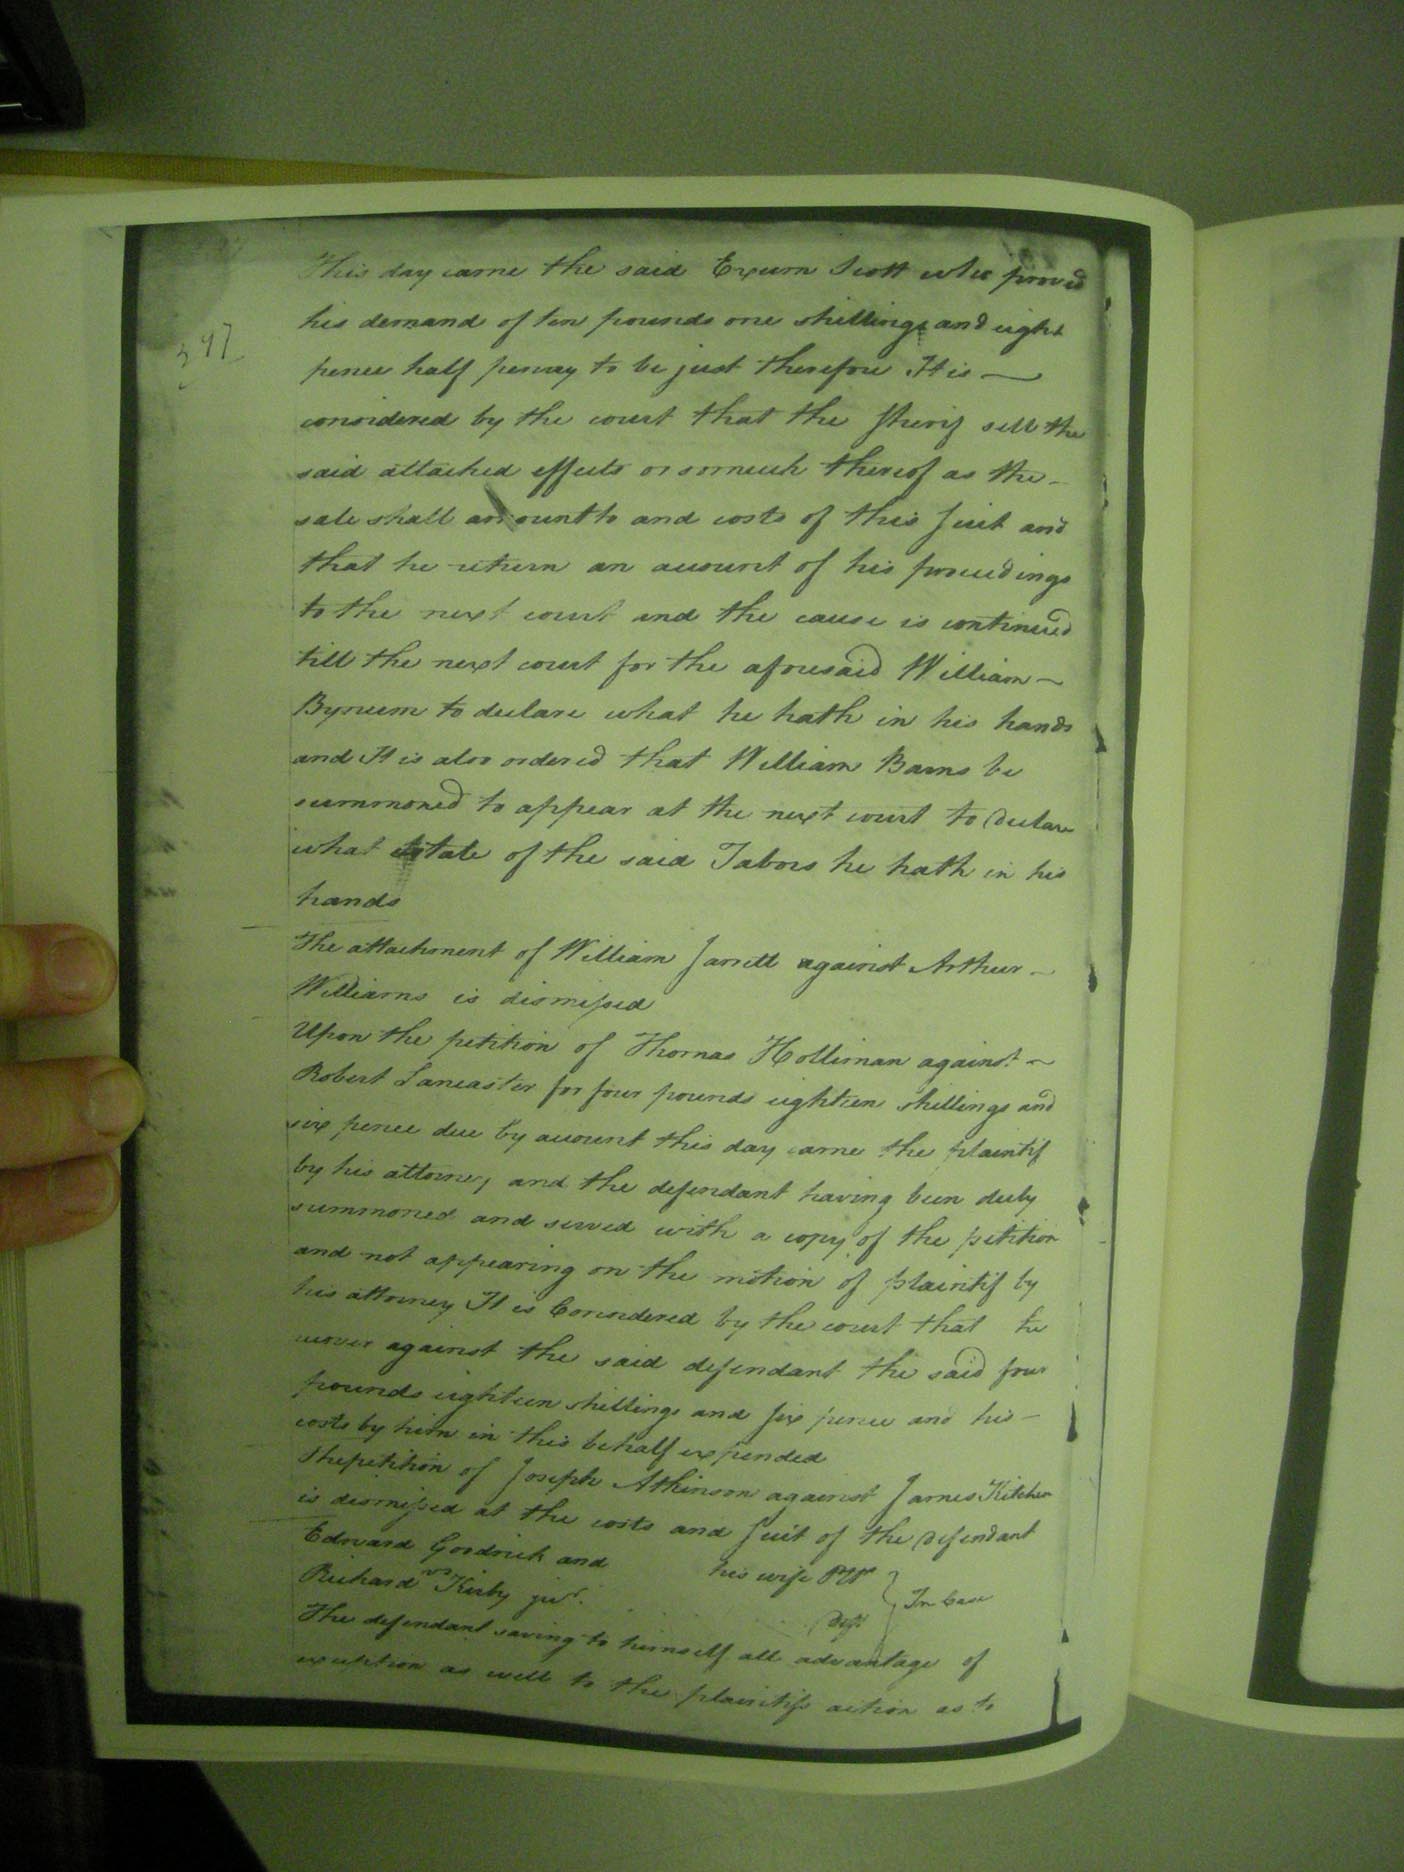 This day came the said Exum Scott who proved
his demand of ten pounds one shillings and eight
pence half penny to be just therefore It is —
considered by the court that the Sherif sell the
said attached effects or somuch thereof as the —
sale shall amount to and costs of this Suit and
that he return an account of his proceedings
to the next court and the cause is continued
till the next court for the aforesaid William —
Bynum to declare what he hath in his hands
and It is also ordered that William Barns be
summoned to appear at the next court to Declare
what Estate of the said Tabors he hath in his
hands
The attachment of William Jarrell against Arthur —
Williams is dismissed
Upon the petition of Thomas Holliman against —
Robert Lancaster for four pounds eighteen shillings and
six pence due by account this day came the plaintif
by his attorney and the defendant having been duly
summoned and served with a copy of the petition
and not appearing on the motion of plaintif by
his attorney It is Considered by the court that he
recover against the said defendant the said four
pounds eighteen shillings and six pence and his —
costs by him in this behalf expended
The petition of Joseph Atkinson against James Kitchen
is dismissed at the costs and Suit of the Defendant
Edward Goodrich and his wife Pltf
vs In Case
Richard Kirby junr. Deft
The defendant saving to himself all advantage of
exception as well to the plaintifs action as to